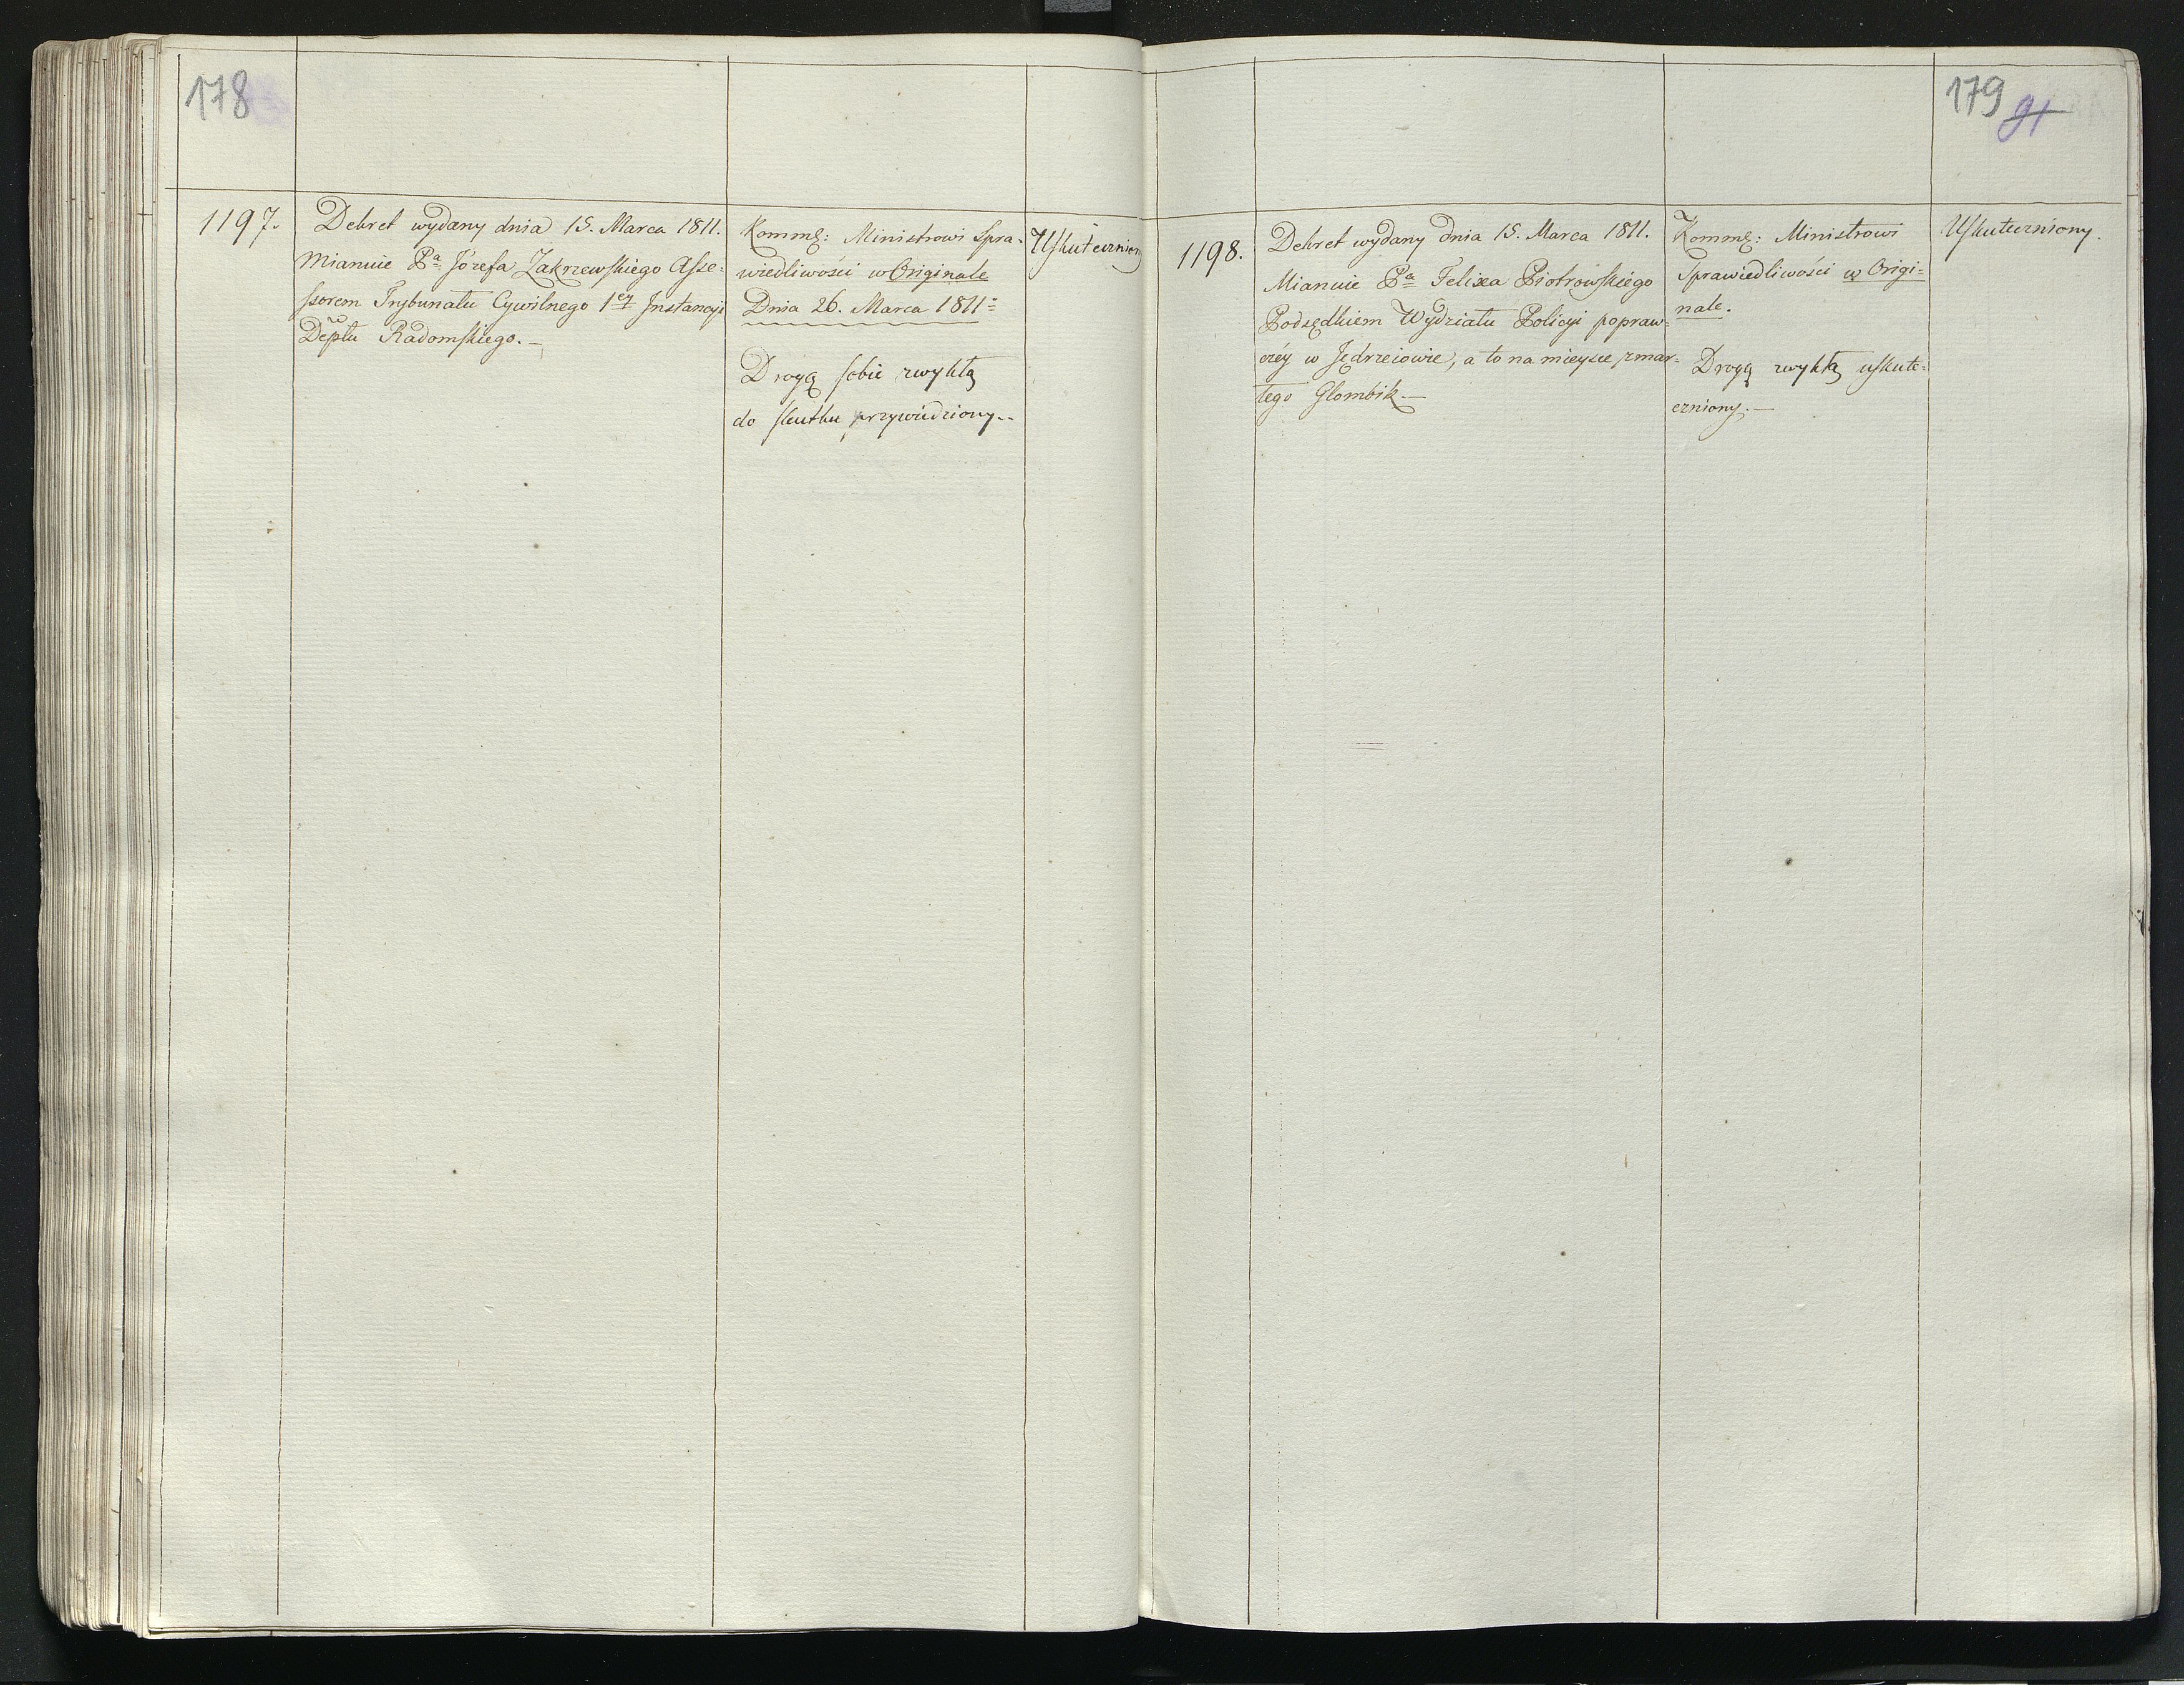 178
1197.
Dekret wydany dnia 15. Marca 1811.
Mianuie Pa Józefa Zakrzewskiego Asse-
ssorem Trybunału Cywilnego 1ey Instancyi
Deptu Radomskiego.—
Kommę: Ministrowi Spra-
wiedliwości w Originale
Dnia 26. Marca 1811:
Drogą sobie zwykłą
do skutku przywiedziony.-
Uskuteczniony
179
91
1198.
Dekret wydany dnia 15. Marca 1811.
Mianuie Pa Felixa Piotrowskiego
Podsędkiem Wydziału Policyi popraw=
czéy w Jędrzeiowie, a to na mieysce zmar=
łego Glombik.—
Kommę: Ministrowi
Sprawiedliwości w Origi=
nale.
Drogą zwykłą uskute=
czniony.—
Uskuteczniony.